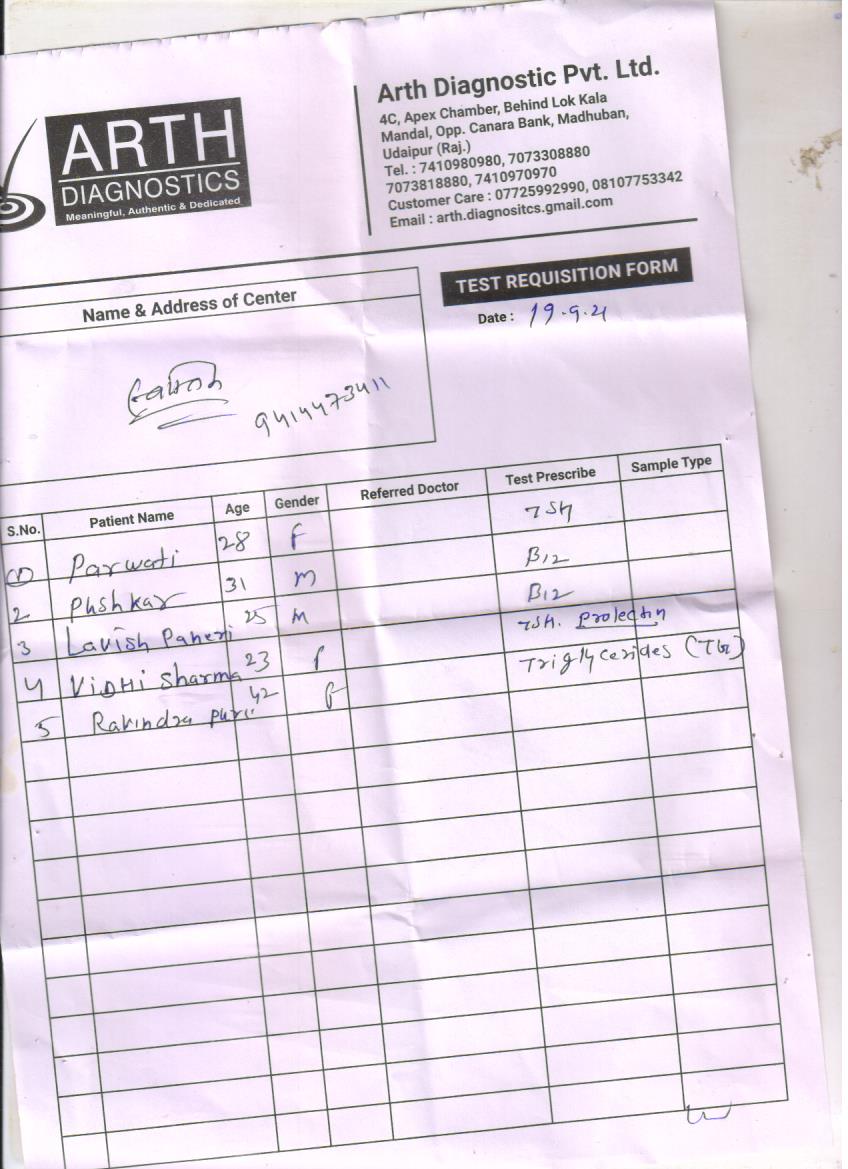 ARTH
DIAGNOSTICS
Meaningful, Authentic & Dedicated
Arth Diagnostic Pvt. Ltd.
4C, Apex Chamber, Behind Lok Kala
Mandal, Opp. Canara Bank, Madhuban,
Udaipur (Raj.)
Tel. : 7410980980, 7073308880
7073818880, 7410970970
Customer Care : 07725992990, 08107753342
Email : arth.diagnositcs.gmail.com
TEST REQUISITION FORM
Date : 19.9.21
Name & Address of Center
9414473411
S.No. Patient Name Age Gender Referred Doctor Test Prescribe Sample Type
1 Parwati 28 F TSH
2 Phshkar 31 M B12
3 Lavish Paneri 25 M B12
4 ViDHi Sharma 23 f TSH. Prolectin
5 Ravindra puri 42 F Triglycerides (TG)